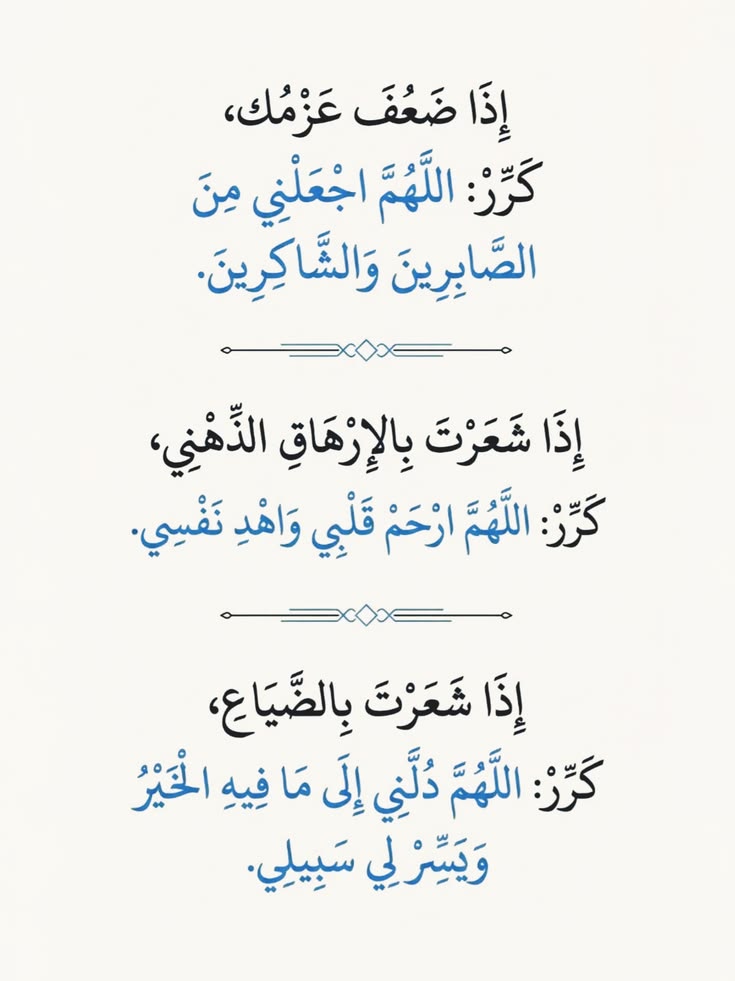 إِذَا ضَعُفَ عَزْمُك،
كَرِّرْ: اللَّهُمَّ اجْعَلْنِي مِنَ
الصَّابِرِينَ وَالشَّاكِرِينَ.
إِذَا شَعَرْتَ بِالإِرْهَاقِ الذِّهْنِي،
كَرِّرْ: اللَّهُمَّ ارْحَمْ قَلْبِي وَاهْدِ نَفْسِي.
إِذَا شَعَرْتَ بِالضَّيَاعِ،
كَرِّرْ: اللَّهُمَّ دُلَّنِي إِلَى مَا فِيهِ الْخَيْرُ
وَيَسِّرْ لِي سَبِيلِي.